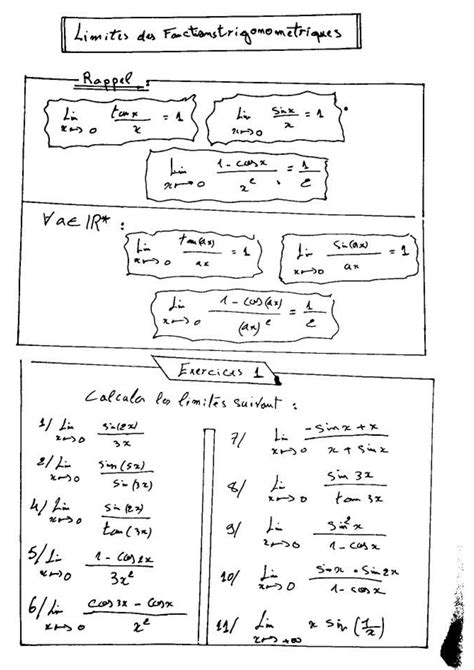 Limites des Fonctions trigonométriques
Rappel :
Lim x→0 tan x / x = 1
Lim x→0 sin x / x = 1
Lim x→0 (1 - cos x) / x² = 1/2
∀ a ∈ IR* :
Lim x→0 tan(ax) / ax = 1
Lim x→0 sin(ax) / ax = 1
Lim x→0 (1 - cos(ax)) / (ax)² = 1/2
Exercices 1
Calculer les limites suivant :
1/ Lim x→0 sin(2x) / 3x
2/ Lim x→0 sin(5x) / sin(3x)
4/ Lim x→0 sin(2x) / tan(3x)
5/ Lim x→0 (1 - cos 2x) / 3x²
6/ Lim x→0 (cos 3x - cos x) / x²
7/ Lim x→0 (-sin x + x) / (x + sin x)
8/ Lim x→0 sin 3x / tan 3x
9/ Lim x→0 sin² x / (1 - cos x)
10/ Lim x→0 (sin x • sin 2x) / (1 - cos x)
11/ Lim x→+∞ x sin(1/x)